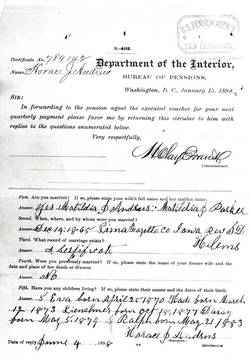 U.S. PENSION AGENCY
SAN FRANCISCO
3-402.
Certificate No. 789142
Name, Horace J Andrus
Department of the Interior,
BUREAU OF PENSIONS,
Washington, D. C., January 15, 1898.
SIR:
In forwarding to the pension agent the executed voucher for your next
quarterly payment please favor me by returning this circular to him with
replies to the questions enumerated below.
Very respectfully,
H Clay Evans
Commissioner.
First. Are you married? If so, please state your wife's full name and her maiden name.
Answer. Yes Matilda J Andrus: Matilda J Parker
Second. When, where, and by whom were you married?
Answer. Dec 14 1865 Lima Fayette Co Iowa Rev S D
Helems
Third. What record of marriage exists?
Answer.
Fourth. Were you previously married? If so, please state the name of your former wife and the
date and place of her death or divorce.
Answer. No
Fifth. Have you any children living? If so, please state their names and the dates of their birth.
Answer. 5 Eva born April 25 1870 born March
12 1873 born Oct 18 1877 Daisy
born May 5 1879 Ralph born May 21 1883
Horace J Andrus
Date of reply, June 4, 1898